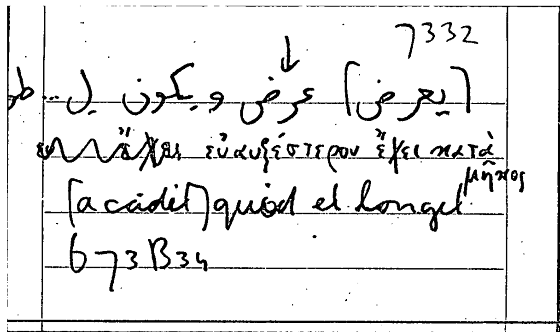 7332
[يعرض] عرض ويكون ل... طو
ἔχει εὐαυξέστερον ἔχει κατὰ
μῆκος
[accidit] quod el longel
673B34